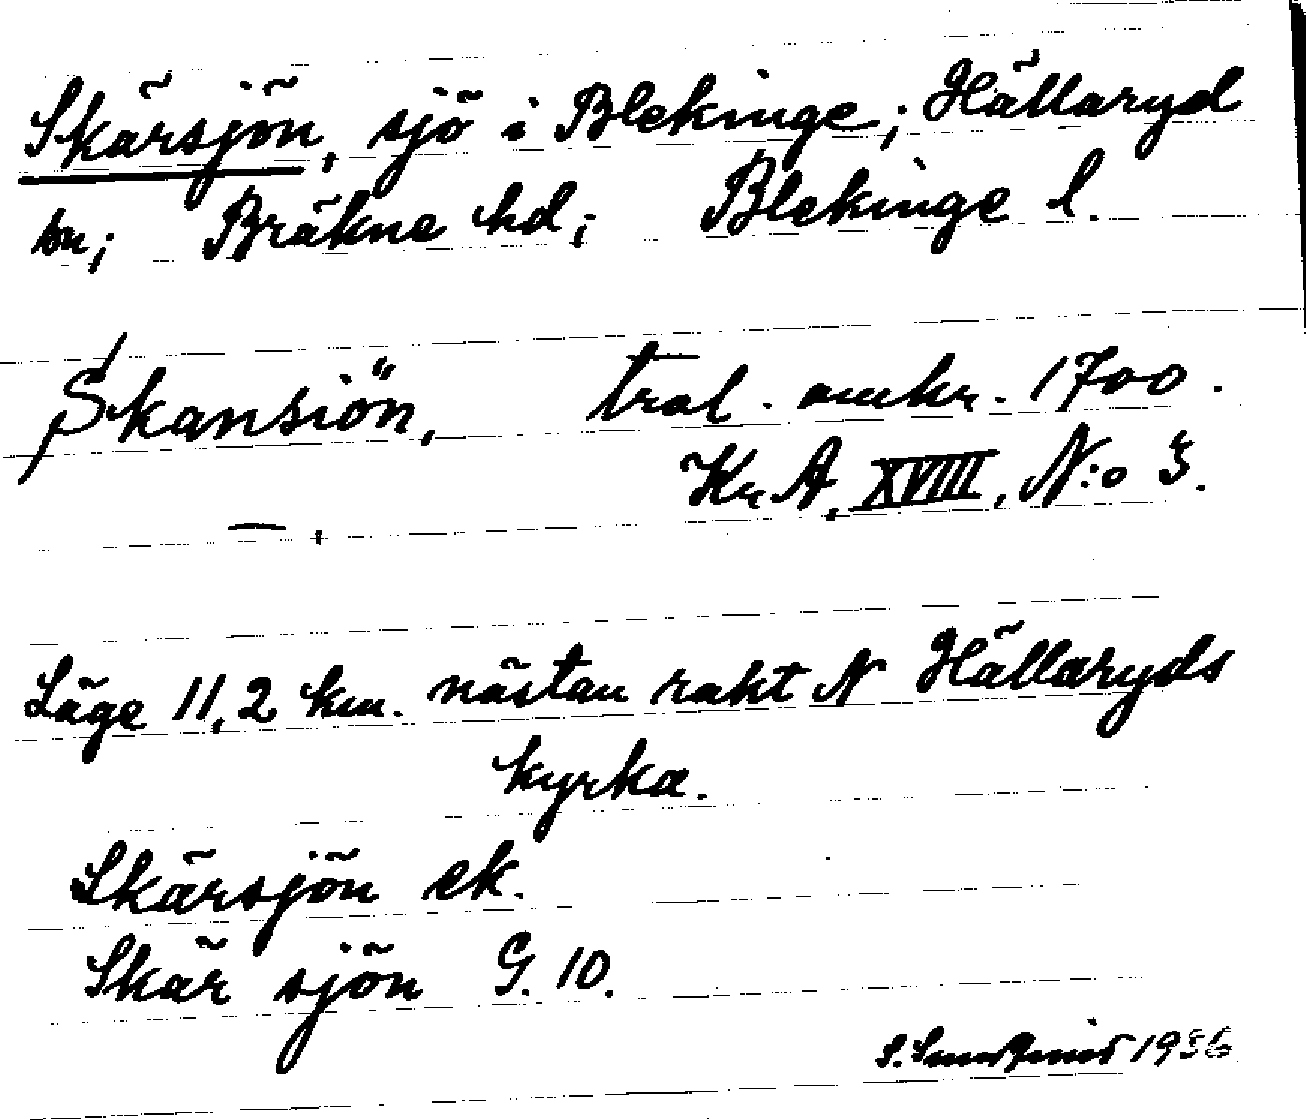 Skärsjön, sjö i Blekinge; Hällaryd
sn; Bräkne hd; Blekinge l.
Skansiön, tral. omkr. 1700.
Kr.A, XVIII, N:o 3.
—,
Läge 11,2 km. nästan rakt N Hällaryds
kyrka.
Skärsjön ek.
Skär sjön G. 10.
1936